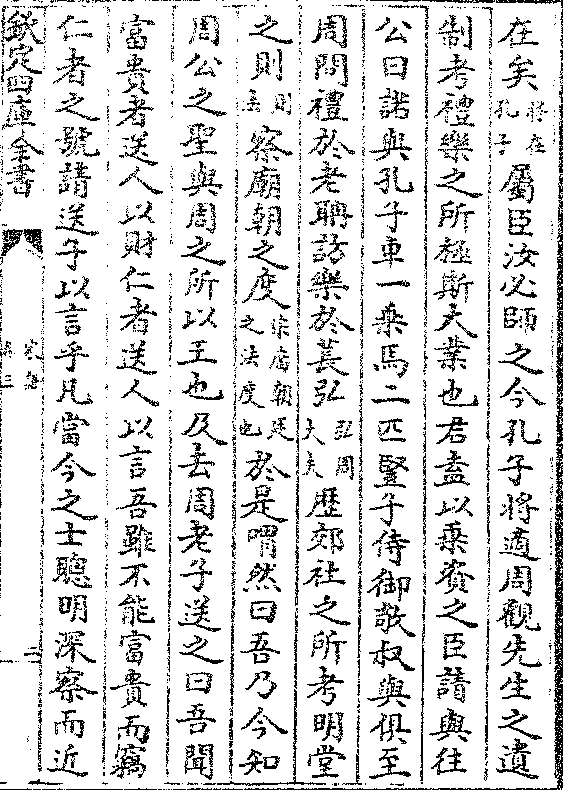 在矣將在孔子屬臣汝必師之今孔子將適周觀先生之遺
制考禮樂之所極斯大業也君盍以乗資之臣請與往
公曰諾與孔子車一乗馬二匹豎子侍御敬叔與俱至
周問禮於老聃訪樂於萇弘弘周大夫歴郊社之所考明堂
之則則法察廟朝之度宗廟朝廷之法度也於是喟然曰吾乃今知
周公之聖與周之所以王也及去周老子送之曰吾聞
富貴者送人以財仁者送人以言吾雖不能富貴而竊
仁者之號請送子以言乎凡當今之士聰明深察而近
欽定四庫全書
家語
卷三